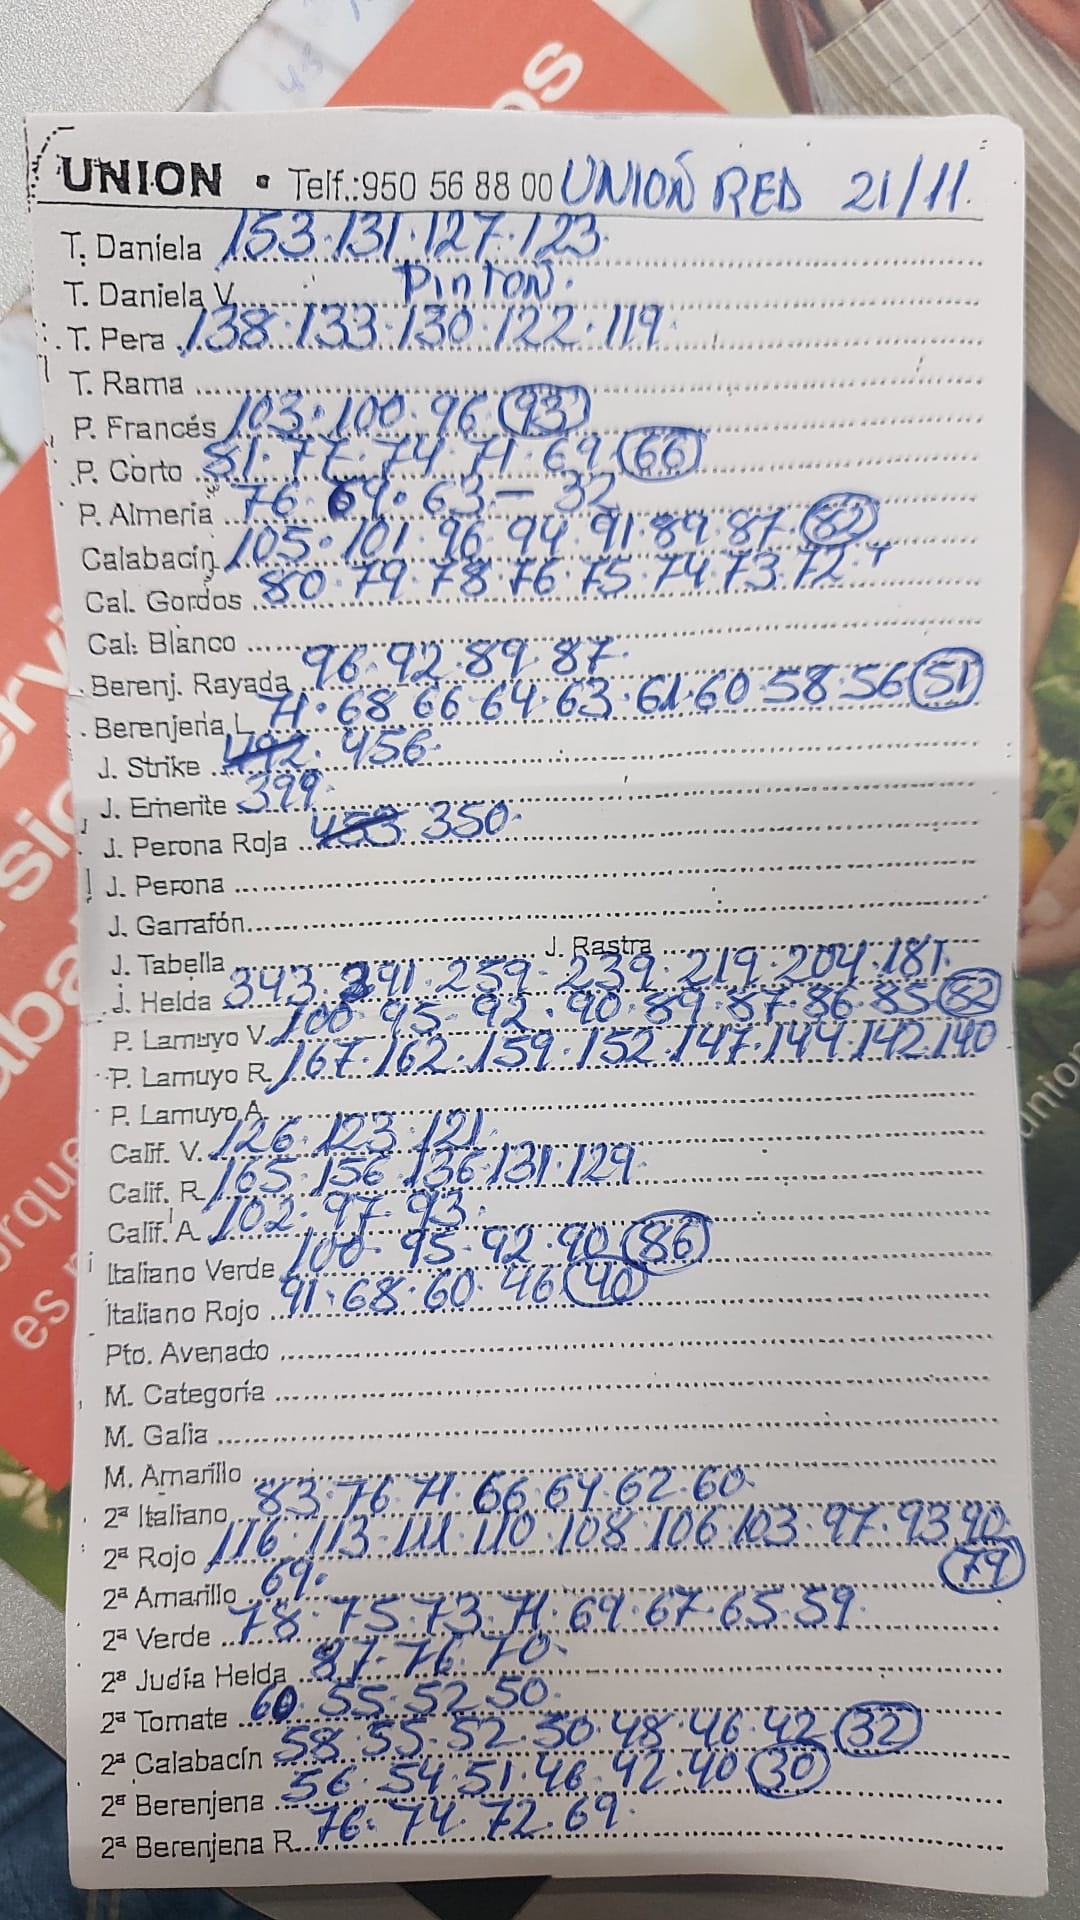 UNION • Telf.:950 56 88 00 UNION RED 21/11.
T. Daniela 153.131.127.123.
T. Daniela V. PINTON.
T. Pera 138.133.130.122.119.
T. Rama
P. Francés 103.100.96.93
P. Corto 81.77.74.71.69.66
P. Almería 76.69.63-32
Calabacín 105.101.96.94.91.89.87.82
Cal. Gordos 80.79.78.76.75.74.73.72.+
Cal. Blanco
Berenj. Rayada 96.92.89.87.
Berenjena L. 71.68.66.64.63.61.60.58.56.51
J. Strike 492.456.
J. Emerite 399.
J. Perona Roja 453.350.
J. Perona
J. Garrafón
J. Tabella J. Rastra
J. Helda 343.291.259.239.219.204.181.
P. Lamuyo V. 100.95.92.90.89.87.86.85.82
P. Lamuyo R. 167.162.159.152.147.144.142.140
P. Lamuyo A.
Calif. V. 126.123.121.
Calif. R. 165.156.136.131.129.
Calif. A. 102.97.93.
Italiano Verde 100.95.92.90.86
Italiano Rojo 91.68.60.46.40
Pto. Avenado
M. Categoría
M. Galia
M. Amarillo
2ª Italiano 83.76.71.66.64.62.60.
2ª Rojo 116.113.111.110.108.106.103.97.93.90.
79
2ª Amarillo 69.
2ª Verde 78.75.73.71.69.67.65.59.
2ª Judía Helda 87.76.70.
2ª Tomate 60.55.52.50.
2ª Calabacín 58.55.52.50.48.46.42.32
2ª Berenjena 56.54.51.46.42.40.30
2ª Berenjena R. 76.74.72.69.